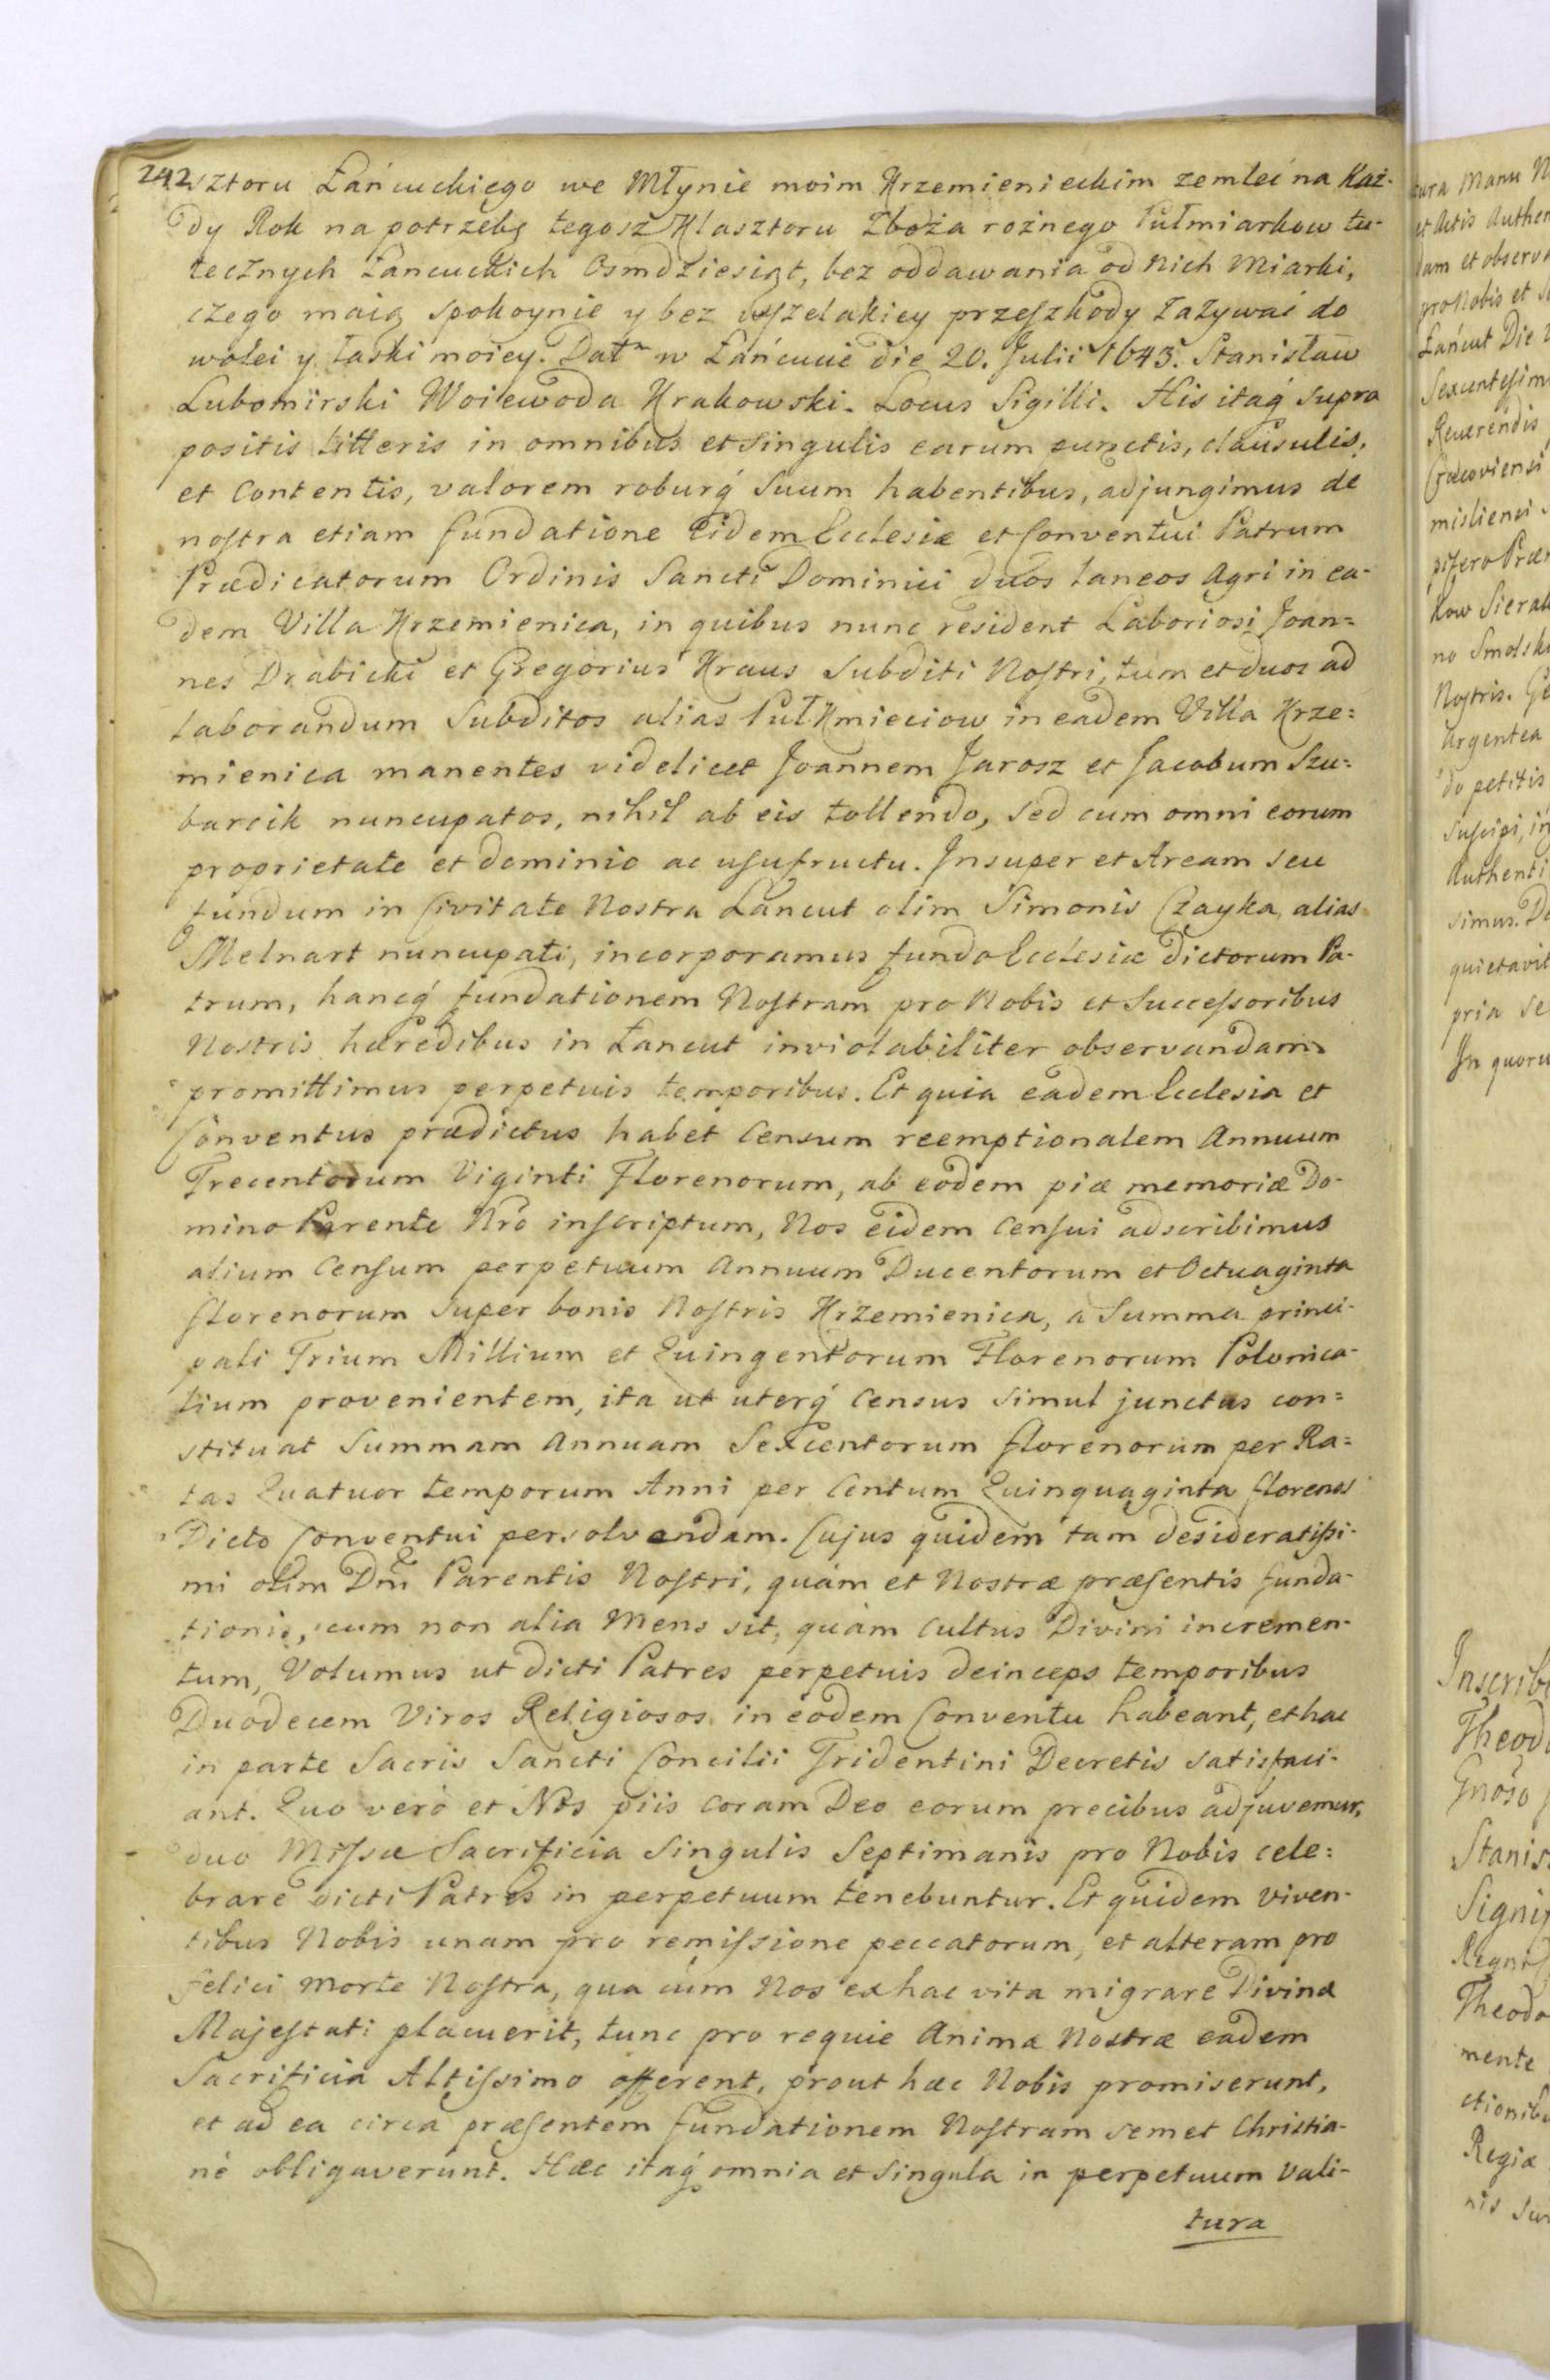 242
sztoru Łańcuckiego we Młynie moim Krzemienieckim zemleć na Kaz-
dy Rok na potrzebę tegosz Klasztoru Zboża rożnego Pułmiarkow tu-
tecznych Łancuckich Osmdziesiąt, bez oddawania od nich Miarki,
czego maią spokoynie y bez wszelakiey przeszkody zazywać do
wolei y łaski moiey. Dat~ w Łańcucie die 20. Julii 1643. Stanisław
Lubomirski Woiewoda Krakowski. Locus Sigilli. His itaq́ supra
positis litteris in omnibus et singulis earum punctis, clausulis,
et contentis, valorem roburq́ suum habentibus, adjungimus de
nostra etiam fundatione Eidem Ecclesiæ et Conventui Patrum
Prædicatorum Ordinis Sancti Dominici duos laneos Agri in ea-
dem Villa Krzemienica, in quibus nunc resident Laboriosi Joan=
nes Drabicki et Gregorius Kraus Subditi Nostri, tum et duos ad
laborandum Subditos alias Puł Kmieciow in eadem Villa Krze=
mienica manentes videlicet Joannem Jarosz et Jacobum Szu=
barcik nuncupatos, nihil ab eis tollendo, sed cum omni eorum
proprietate et dominio ac usufructu. Insuper et Aream seu
fundum in Civitate Nostra Lancut olim Simonis Czayka, alias
Melnart nuncupati, incorporamus fundo Ecclesiæ dictorum Pa-
trum, hancq́ fundationem Nostram pro Nobis et Successoribus
Nostris hæredibus in Łancut inviolabiliter observandam
promittimus perpetuis temporibus. Et quia eadem Ecclesia et
Conventus prædictus habet Censum reemptionalem Annuum
Trecentorum Viginti Florenorum, ab eodem piæ memoriæ Do-
mino Parente Nr̃o inscriptum, Nos eidem Censui adscribimus
alium Censum perpetuum Annuum Ducentorum et Octuaginta
florenorum super bonis Nostris Krzemienica, a Summa princi-
pali Trium Millium et Quingentorum Florenorum Polonica-
lium provenientem, ita ut uterq́ Census simul junctus con=
stituat Summam Annuam Sexcentorum florenorum per Ra=
tas Quatuor temporum Anni per Centum Quinquaginta florenos
Dicto Conventui persolvendam. Cujus quidem tam desideratissi-
mi olim Dñi Parentis Nostri, quám et Nostræ præsentis funda-
tionis, cum non alia Mens sit, quàm cultus Divini incremen-
tum, Volumus ut dicti Patres perpetuis deinceps temporibus
Duodecem Viros Religiosos in eodem Conventu habeant, et hac
in parte Sacris Sancti Concilii Tridentini Decretis satisfaci-
ant. Quo verò et Nos piis coram Deo eorum precibus adjuvemur,
duo Missæ Sacrificia Singulis Septimanis pro Nobis cele=
brare dicti Patres in perpetuum tenebuntur. Et quidem viven-
tibus Nobis unam pro remissione peccatorum, et alteram pro
felici morte Nostra, qua cùm Nos ex hac vita migrare Divinæ
Majestati placuerit, tunc pro requie Animæ Nostræ eadem
Sacrificia Altissimo offerent, prout hæc Nobis promiserunt,
et ad ea circa præsentem fundationem Nostram semet Christia-
nè obligaverunt. Hæc itaq́ omnia et singula in perpetuum vali-
tura
tura Manu N
et Actis Authen
dam et observ
pro Nobis et S
Łańcut Die
Sexcentesim
Reverendis
Cracoviensi
mislienci
pifero Præ
kow Sierak
no Smolsk
Nostris. Ge
argentea
do petitis
suscipi, in
Authenti
simus. Da
quietavit
pria se
In quoru
Inscrib
Theodo
Gnoso
Stanis
Signif
Regni
Theodo
mente
ctionibu
Regiæ
nis Su